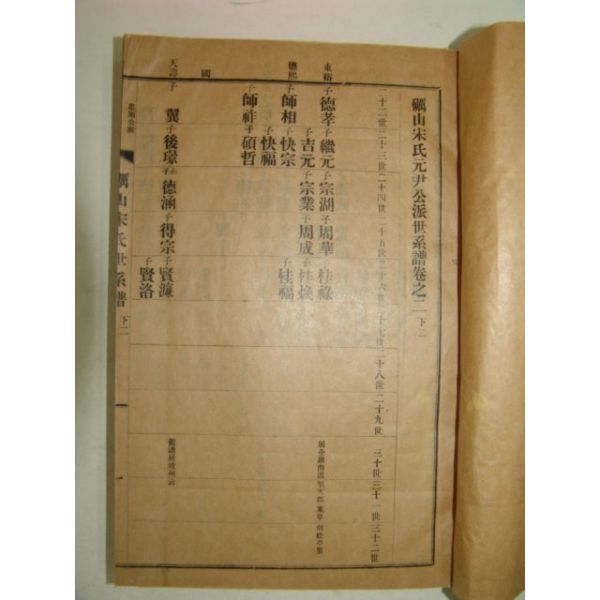 礪山宋氏元尹公派世系譜卷之二 下二
二十二世 二十三世 二十四世 二十五世 二十六世 二十七世 二十八世 二十九世 三十世 三十一世 三十二世
子 德孝 子 繼元 子 宗湖 子 周華 子 桂祿
子 吉元 子 宗業 子 周成 子 桂煥
子 師相 子 快宗 子 桂福
子 快福
子 師祥 子 碩哲
國
天壽 子 翼 子 後璟 德涵 子 得宗 子 賢濂
子 賢洛
礪山宋氏世系譜 下二 一